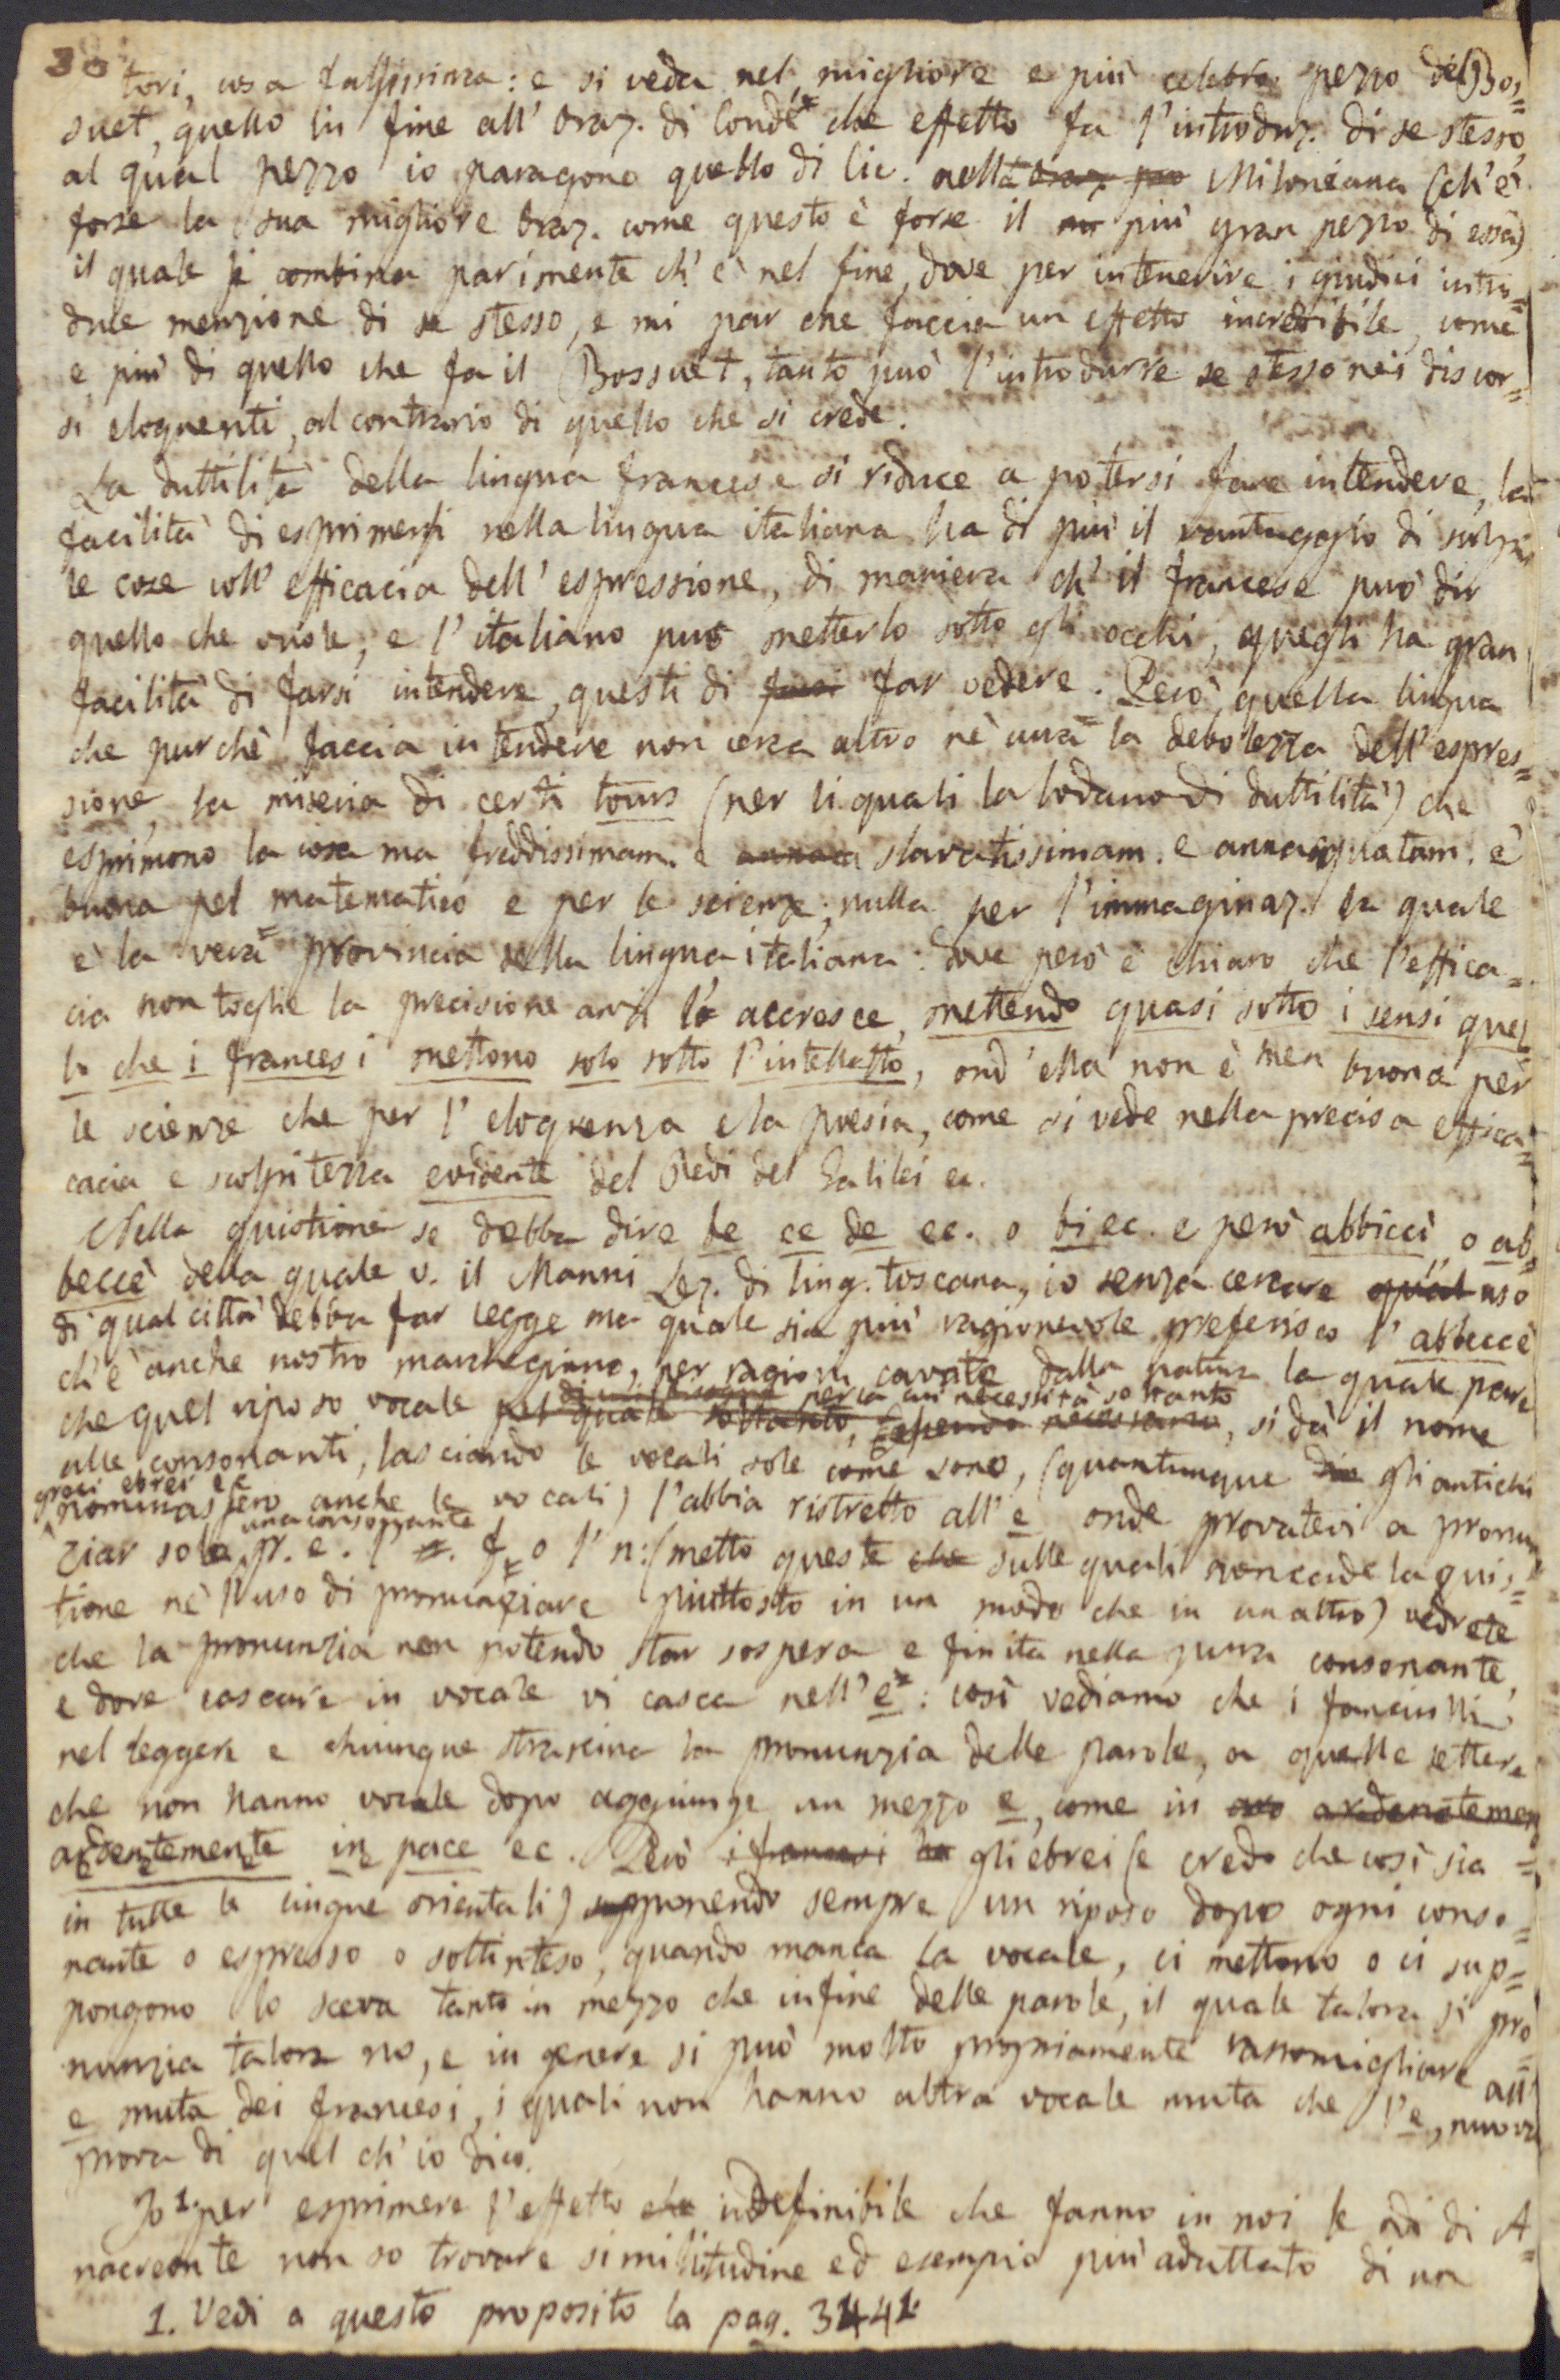 30
tori, cosa falsissima: e si veda nel migliore e più celebre pezzo del Bos=
suet, quello in fine all'Oraz. di Condé che effetto fa l'introduz. di se stesso,
al qual pezzo io paragono quello di Cic. nella Miloniana (ch'è
forse la sua migliore Oraz. come questo è forse il più gran pezzo di essa)
il quale si combina parimente ch'è nel fine, dove per intenerire i giudici intro=
duce menzione di se stesso, e mi par che faccia un effetto incredibile, come
e più di quello che fa il Bossuet, tanto può l'introdurre se stesso nei discor=
si eloquenti, al contrario di quello che si crede.
La duttilità della lingua francese si riduce a potersi fare intendere, la
facilità di esprimersi nella lingua italiana ha di più il vantaggio di scolpir
le cose coll'efficacia dell'espressione, di maniera ch'il francese può dir
quello che vuole, e l'italiano può metterlo sotto gli occhi, quegli ha gran
facilità di farsi intendere, questi di far vedere. Però quella lingua
che purchè faccia intendere non cerca altro nè cura la debolezza dell'espres=
sione, la miseria di certi tours (per li quali la lodano di duttilità) che
esprimono la cosa ma freddissimam. e slavatissimam. e annacquatam. è
buona pel matematico e per le scienze; nulla per l'immaginaz. la quale
è la vera provincia della lingua italiana: dove però è chiaro che l'effica=
cia non toglie la precisione anzi la accresce, mettendo quasi sotto i sensi quel
lo che i francesi mettono solo sotto l'intelletto, ond'ella non è men buona per
le scienze che per l'eloquenza e la poesia, come si vede nella precisa effica=
cacia e scolpitezza evidente del Redi del Galilei ec.
Nella quistione se debba dire be ce de ec. o bi ec. e però abbiccì, o ab=
beccè della quale v. il Manni Lez. di ling. toscana, io senza cercare uso
di qual città debba far legge ma quale sia più ragionevole preferisco l'abbeccè
ch'è anche nostro marchegiano, per ragioni cavate dalla natura la quale pare
per la cui necessità soltanto
che quel riposo vocale, si dà il nome
alle consonanti, lasciando le vocali sole come sono, (quantunque gli antichi
greci ebrei ec
nominassero anche le vocali) l'abbia ristretto all'e onde provatevi a pronun
una consonante
ziar sola p. e. l' f o l'n: (metto queste sulle quali non cade la quis=
tione nè l'uso di pronunziare piuttosto in un modo che in un altro) vedrete
che la pronunzia non potendo star sospesa e finita nella pura consonante,
e dove cascare in vocale vi casca nell'e: così vediamo che i fanciulli
nel leggere e chiunque strascina la pronunzia delle parole, a quelle lettere
che non hanno vocale dopo aggiunge un mezzo e, come in
ardentemente in pace ec. Però gli ebrei (e credo che così sia
in tutte le lingue orientali) supponendo sempre un riposo dopo ogni conso=
nante o espresso o sottinteso, quando manca la vocale, ci mettono o ci sup=
pongono lo sceva tanto in mezzo che infine delle parole, il quale talora si pro
nunzia talora no, e in genere si può molto propriamente rassomigliare all'
e muta dei francesi, i quali non hanno altra vocale muta che l'e, nuova
prova di quel ch'io dico.
Io 1. per esprimere l'effetto indefinibile che fanno in noi le odi di A=
nacreonte non so trovare similitudine ed esempio più adattato di un
1. Vedi a questo proposito la pag. 3441